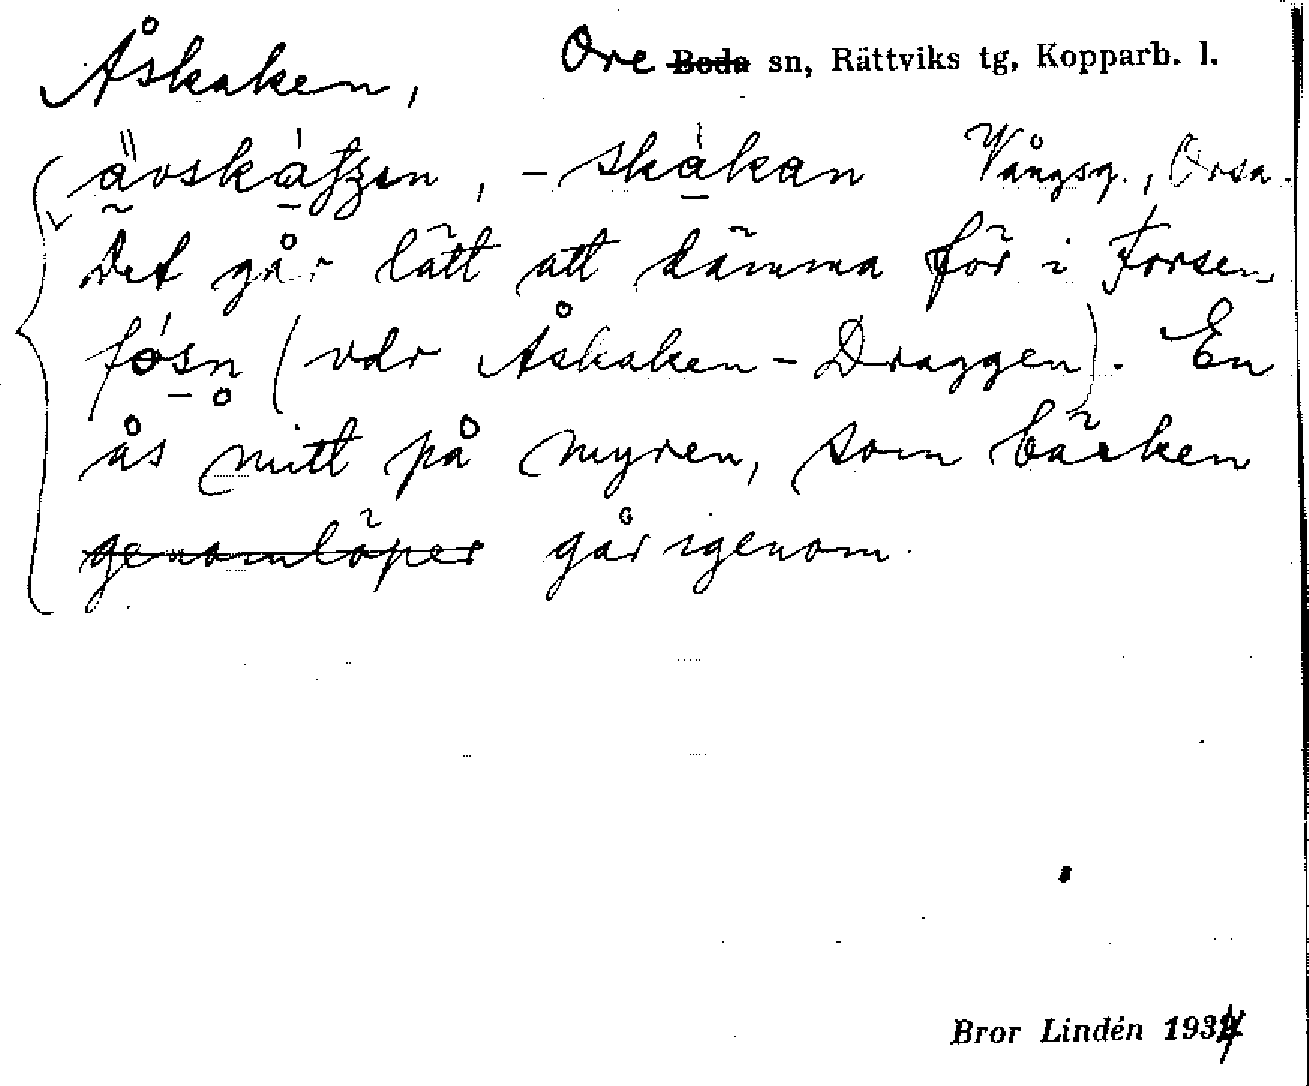 Åskaken, Ore Boda sn, Rättviks tg, Kopparb. l.
-skàkan Vångsg., Orsa.
Det går lätt att dämma för i Forsen
fósn (vdr Åskaken-Draggen). En
ås mitt på myren, som bäcken
genomlöper går igenom.
Bror Lindén 1934